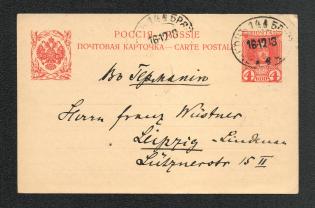 РОССІЯ RUSSIE
ПОЧТОВАЯ КАРТОЧКА — CARTE POSTALE
144 БРЯ
16 12 13
144 БР
16 12 13
4 4
Въ Германію
Herrn Franz Wüstner
Leipzig - Lindenau
Lütznerstr 15 II